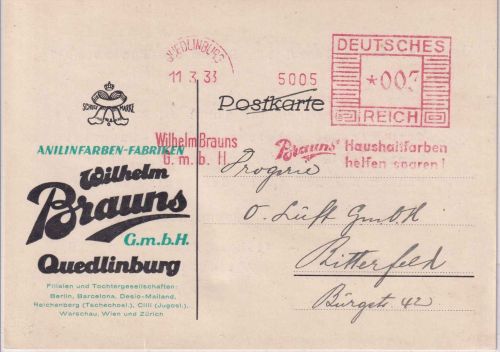 QUEDLINBURG
11.3.33
5005
DEUTSCHES
*005
REICH
Postkarte
SCHUTZ MARKE
Wilhelm Brauns
G. m. b. H
Brauns' Haushaltfarben
helfen sparen!
ANILINFARBEN-FABRIKEN
Wilhelm
Brauns
G.m.b.H.
Quedlinburg
Filialen und Tochtergesellschaften:
Berlin, Barcelona, Desio-Mailand,
Reichenberg (Tschechosl.), Cilli (Jugosl.),
Warschau, Wien und Zürich
Drogerie
O. Lüft GmbH
Bitterfeld
Burgstr. 42